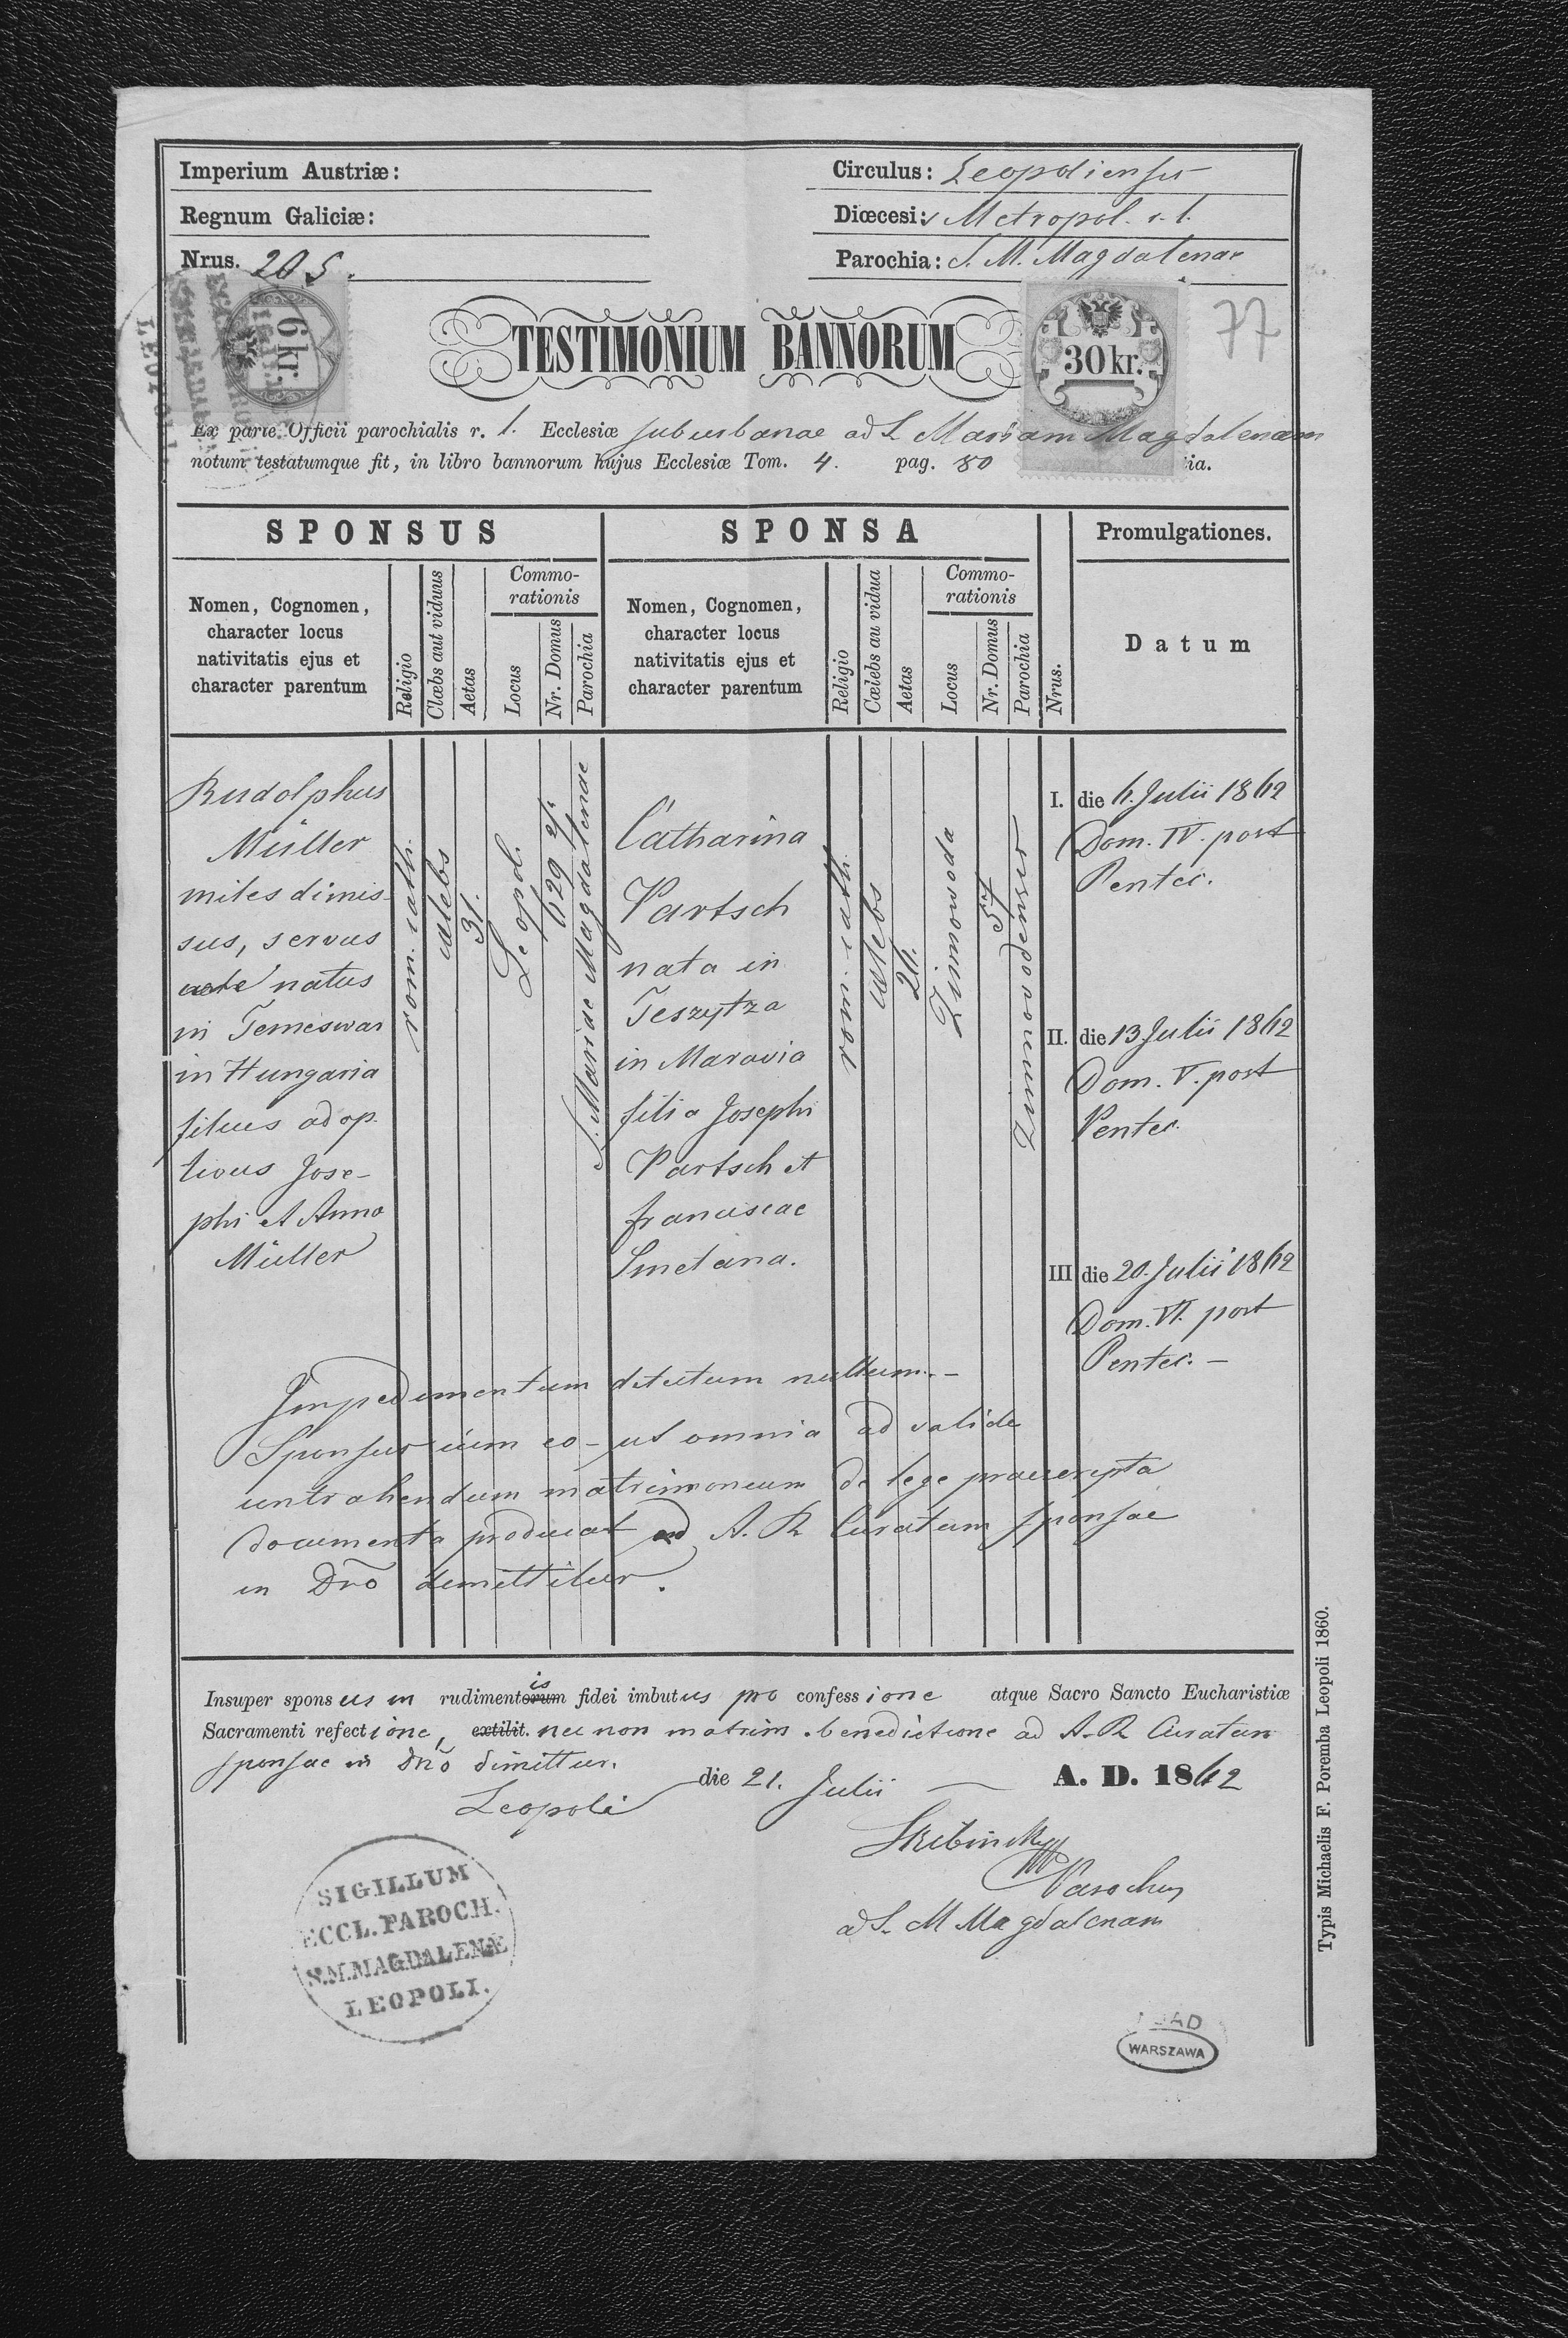 Imperium Austriæ:
Regnum Galiciæ:
Nrus. 205.
Circulus: Leopoliensis
Diœcesis Metropol. r. l.
Parochia: S. M. Magdalenae
LEOPOLI
6 kr.
TESTIMONIUM BANNORUM
30 kr.
77
Ex parte Officii parochialis r. l. Ecclesiæ suburbanae ad S. Mariam Magdalenam
notum testatumque fit, in libro bannorum hujus Ecclesiæ Tom. 4. pag. 80 ia.
SPONSUS
SPONSA
Promulgationes.
Nomen, Cognomen,
character locus
nativitatis ejus et
character parentum
Religio
Clæbs aut viduus
Aetas
Commo-
rationis
Locus
Nr. Domus
Parochia
Nomen, Cognomen,
character locus
nativitatis ejus et
character parentum
Religio
Cælebs au vidua
Aetas
Commo-
rationis
Locus
Nr. Domus
Parochia
Nrus.
Datum
Rudolphus
Müller
miles dimis-
sus, servus
natus
in Temeswar
in Hungaria
filius adop-
tivus Jose-
phi et Anna
Müller
rom. cath.
caelebs
31.
Leopol.
629 2/4
S. Mariae Magdalenae
Catharina
Partsch
nata in
Teszytza
in Maravia
filia Josephi
Partsch et
Franciscae
Smetana.
rom. cath.
caelebs
26.
Zimnowoda
57
Zimnowodensis
I. die 6. Julii 1862
Dom. IV. post
Pentec.
II. die 13 Julii 1862
Dom. V. post
Pentec.
III die 20. Julii 1862
Dom. VI. post
Pentec. –
Impedimentum detectum nullum. –
Sponsus cum eo – ut omnia ad valide
contrahendum matrimonium de lege praescripta
documenta producat ad A. R. Curatum sponsae
in Dno dimittitur.
Insuper sponsus in rudimentorum is fidei imbutus pro confessione atque Sacro Sancto Eucharistiæ
Sacramenti refectione, extilit. nec non matrim. benedictione ad A. R. Curatum
sponsae in Dno dimittur.
Leopoli die 21. Julii A. D. 1862
Skibinsky
Parochus
ad S. M Magdalenam
SIGILLUM
ECCL. PAROCH.
S.M.MAGDALENÆ
LEOPOLI.
AGAD
WARSZAWA
Typis Michaelis F. Poremba Leopoli 1860.